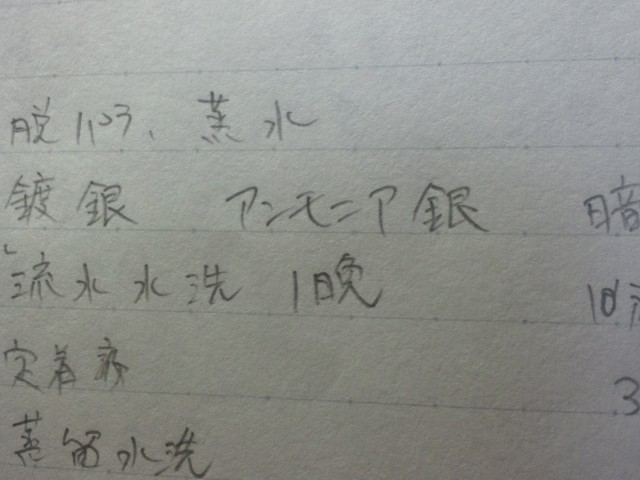 脱パラ、蒸水
鍍銀 アンモニア銀 暗
流水水洗 1晩 10
定着液 3
蒸留水洗